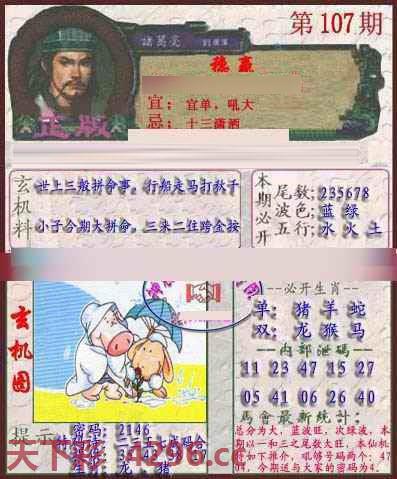 第107期
諸葛亮
穩赢
宜：宜单，吼大
忌：十三潇洒
正版
玄机料
世上三般拼命事。行船走马打秋千
小子今期大拼命。三来二往跨金按
本期必开
尾数:235678
波色:蓝 绿
五行:水 火 土
必開生肖
单: 猪 羊 蛇
双: 龙 猴 马
内部泄碼
11 23 47 15 27
05 41 06 26 40
馬會最新統計:
总分为大，蓝波旺，次绿波，本期以一和三之尾数大旺，本仙机将如下推介，吼够号码两个：4704，今期送与大家的密码为4.
玄机图
提示
密码: 2146
天下彩 4296.cc